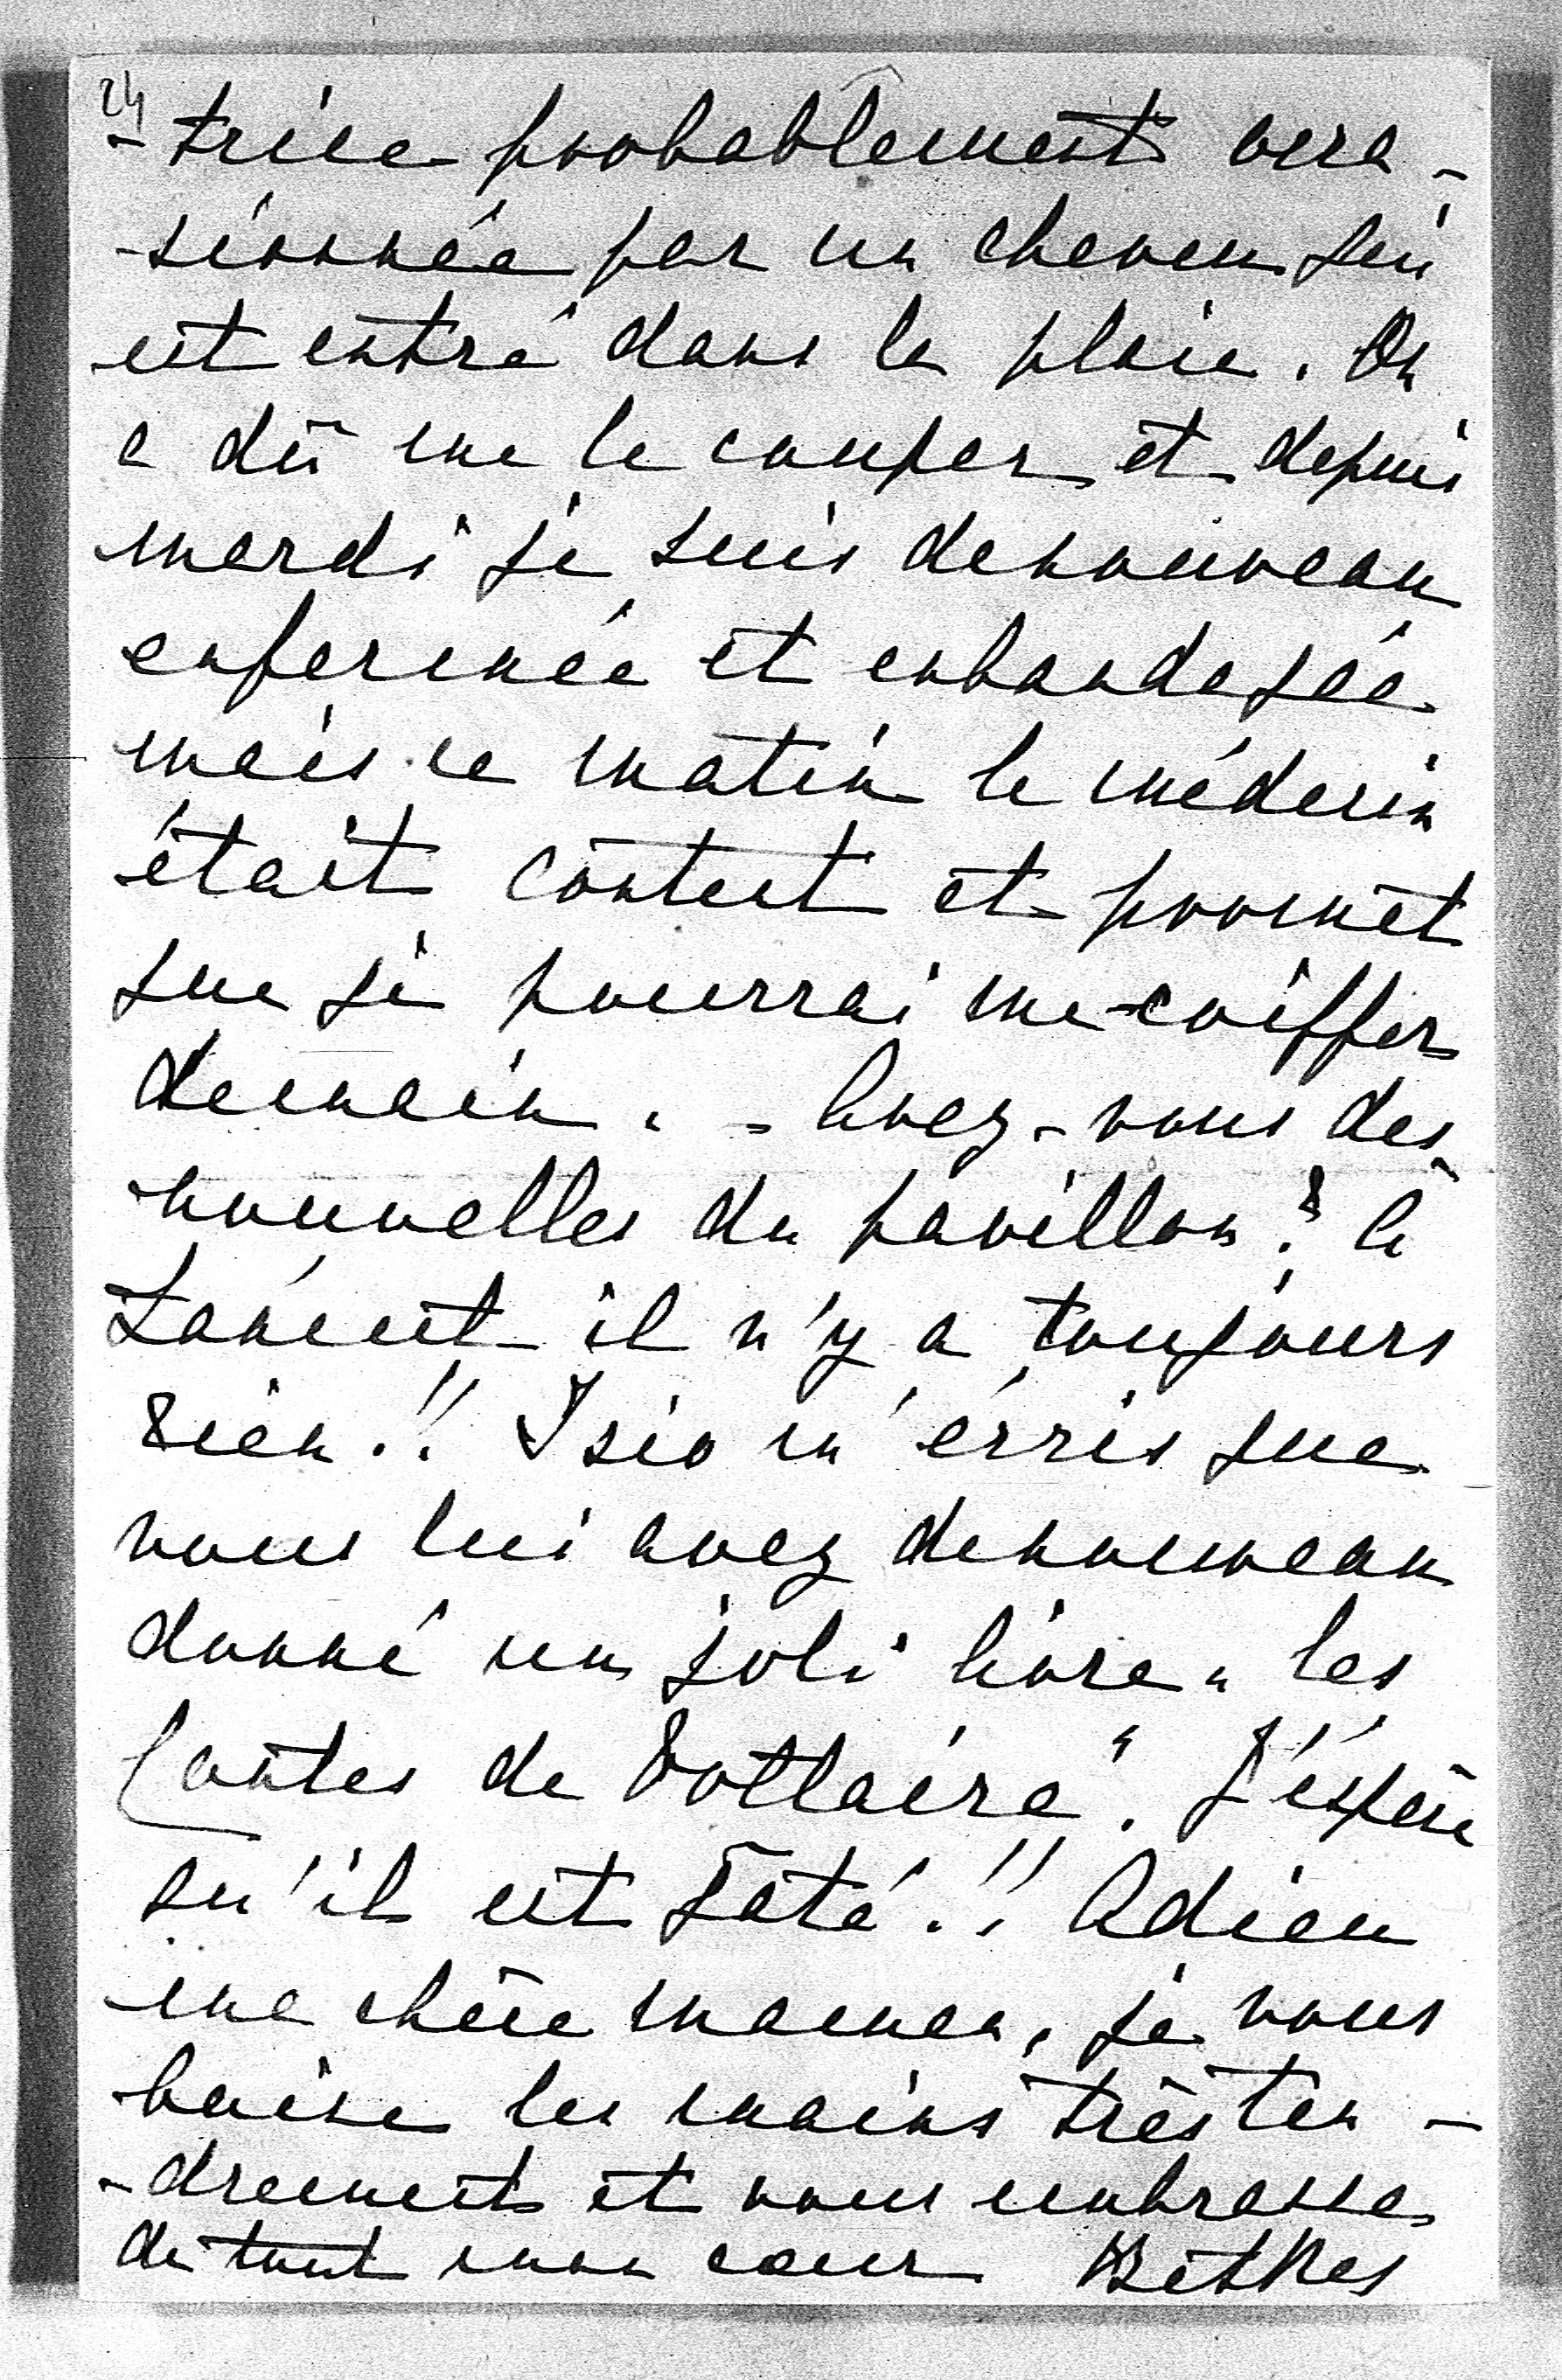 24
-trice probablement occa-
-sionnée par un cheveu qui
est entré dans la plaie. On
a dû me le couper et depuis
mardi je suis denouveau
enfermée et enbandagée
mais ce matin le médecin
était content et promet
que je pourrai me coiffer
demain. - Avez-vous des
nouvelles du pavillon? à
Lancut il n'y a toujours
rien!! Isio m'écris que
vous lui avez denouveau
donné un joli livre "les
Contes de Voltaire". J'éspère
qu'il est gaté!! Adieu
ma chère maman, je vous
baise les mains très ten-
-drement et vous embrasse
de tout mon cœur